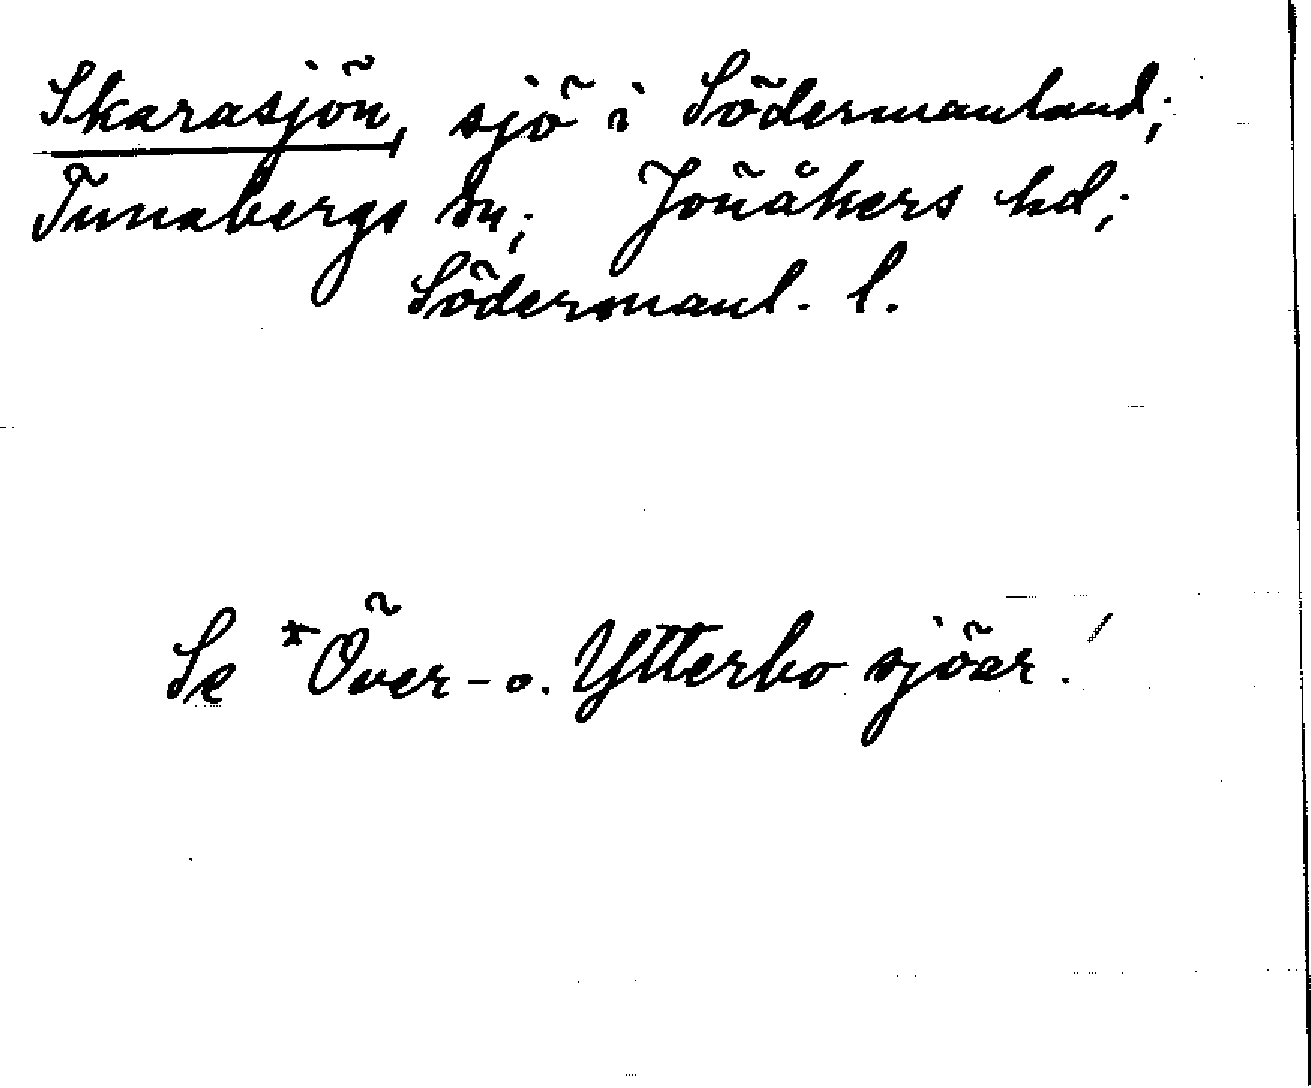 Skarasjön, sjö i Södermanland;
Tunabergs sn; Jönåkers hd;
Södermanl. l.
Se *Över- o. Ytterbo sjöar.